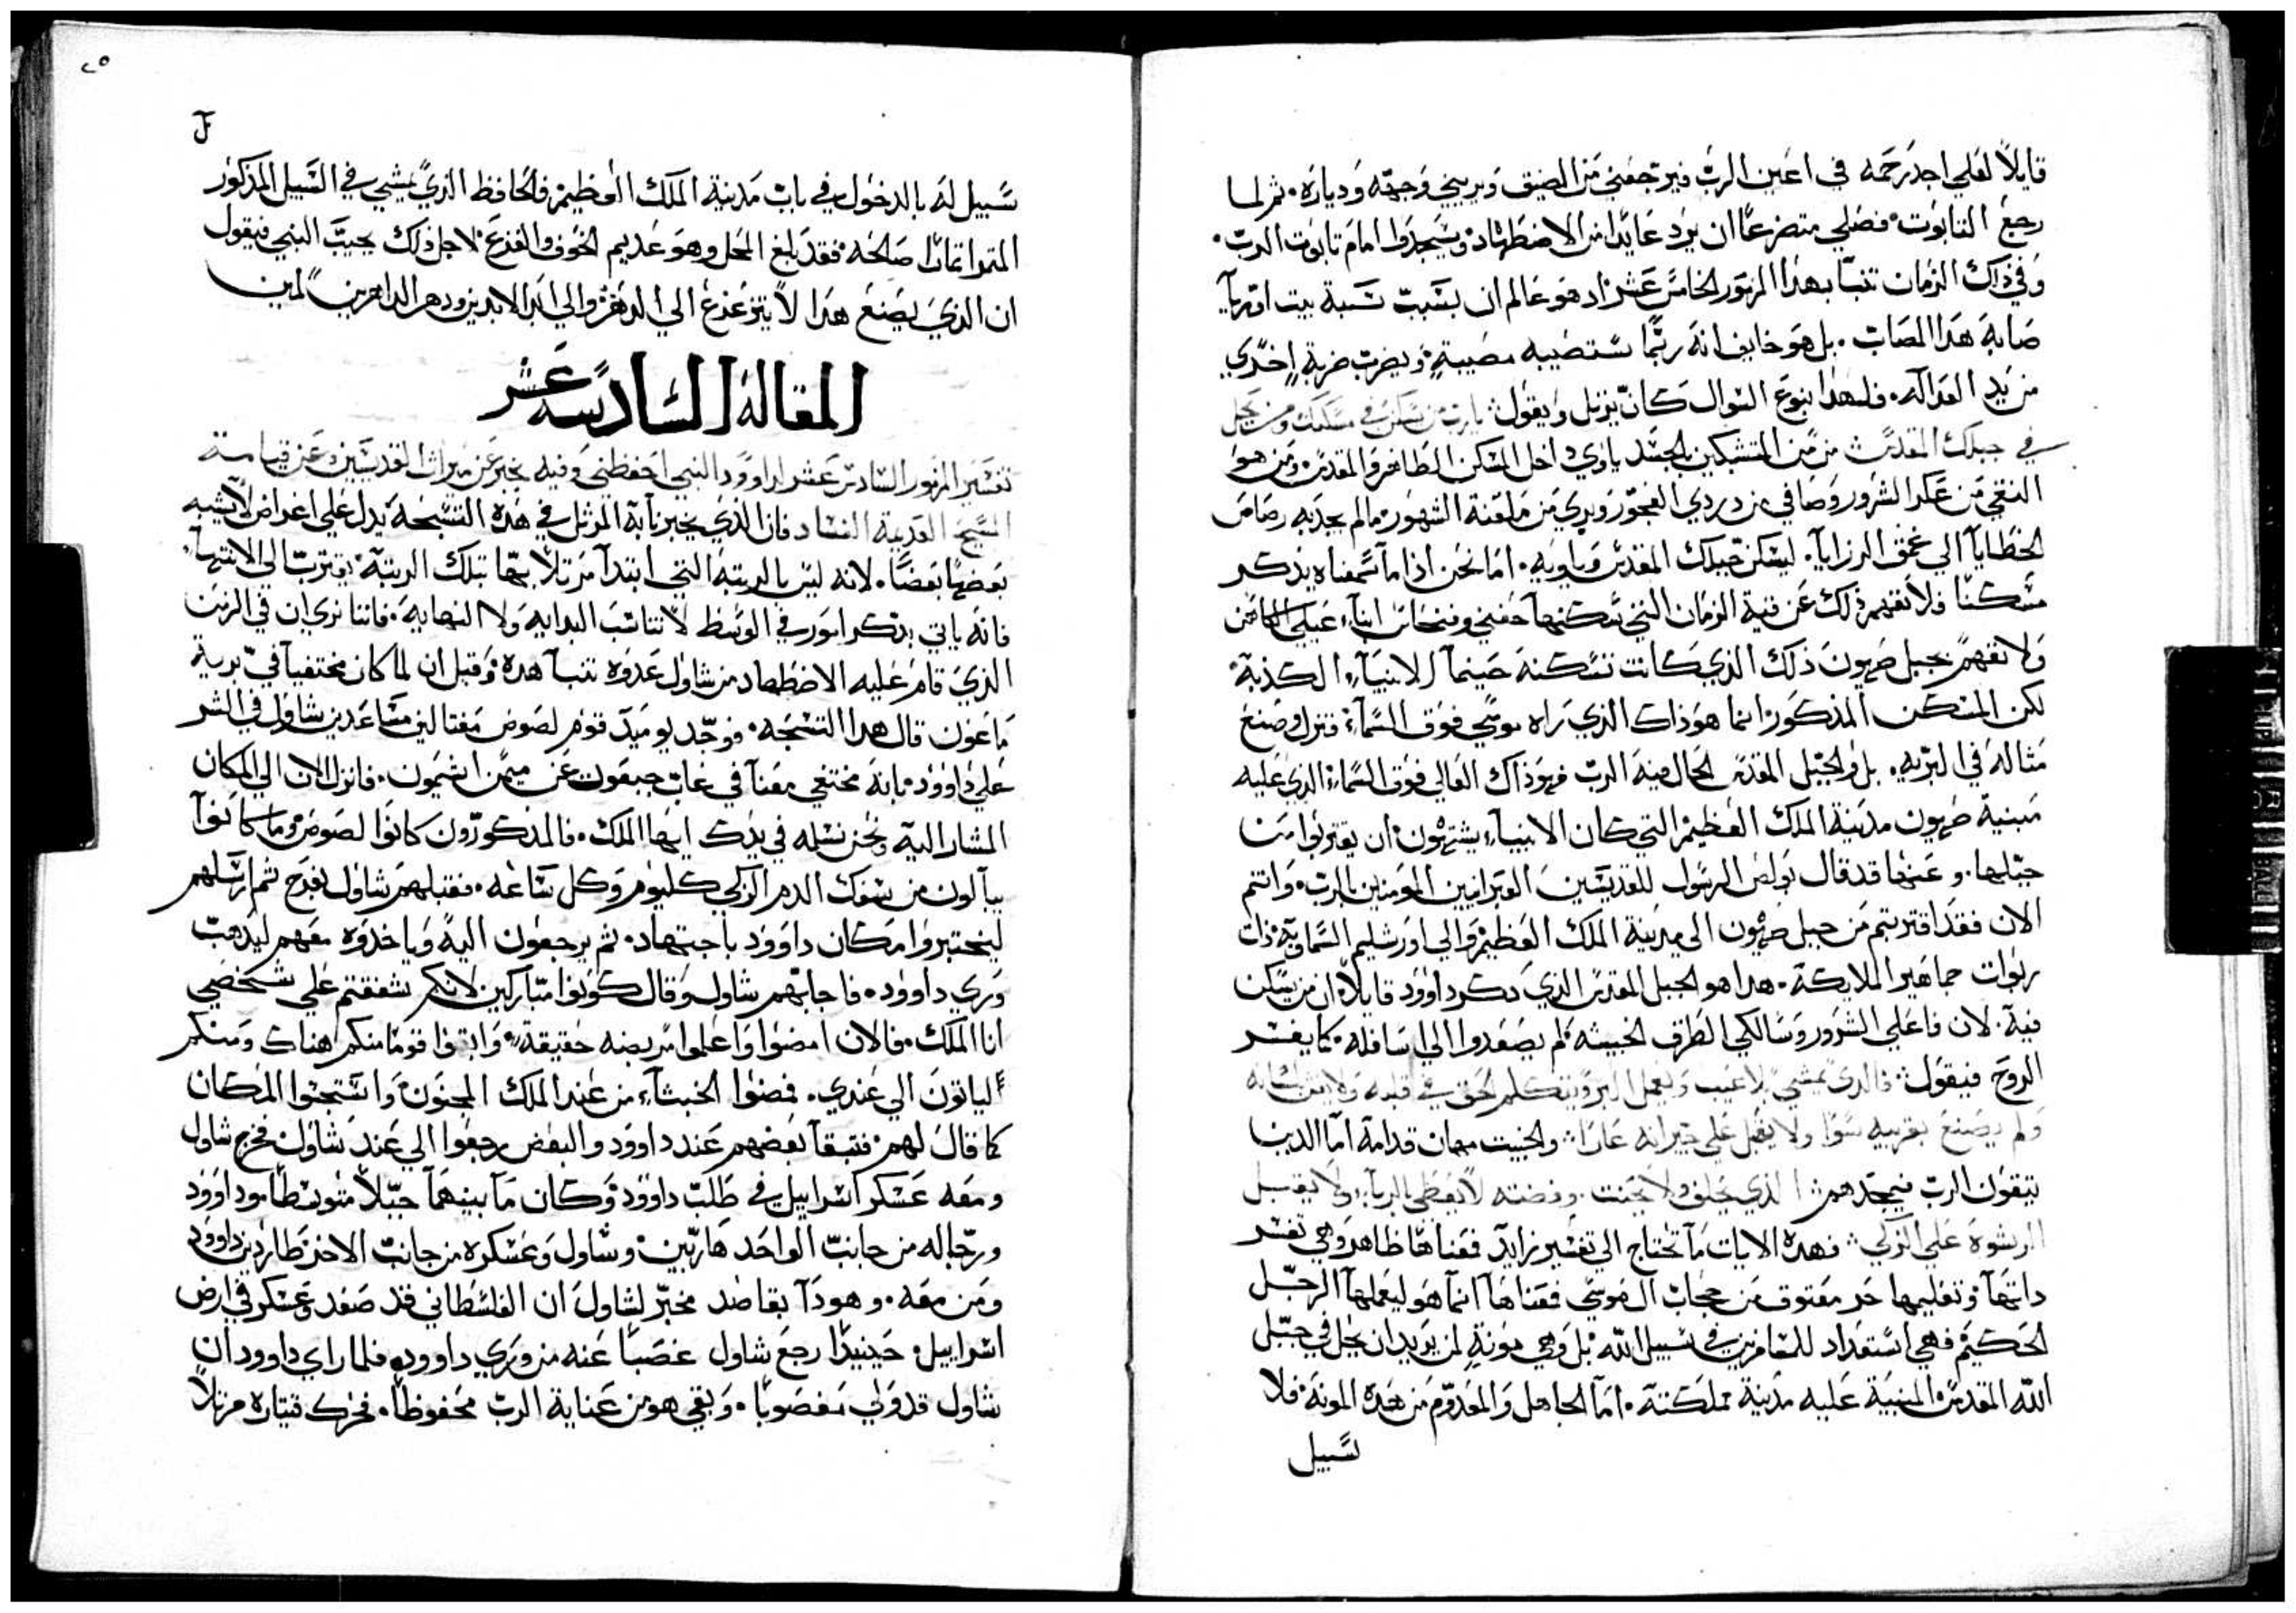 قايلاً لعلي اجد رحمه في اعين الربّ فيرجعني من الضيق ويريني وجهه ودياره. ثم لما
رجع التابوت. فصلي متضرعاً ان يرد عايدا من الاضطهاد. ويسجدوا امام تابوت الربّ.
وفي ذاك الزمان تنبّا بهذا المزمور الخامس عشر اد هو عالم ان بسبب نسبة بيت اوريا
صابه هذا المصاب. بل هو خايف انه ربما ستصيبه مصيبةٍ ويضرب ضربةٍ اخري
من يد العداله. فلهذا بنوع السوال كان يرتل ويقول يا رب من يسكن في مسكنك ومن يحل
في جبلك المقدس من من المتشبكين بالجسد ياوي داخل المسكن الطاهر والمقدس. ومن هوا
النقي من عكر الشرور وصافي من دردي الفجور وبري من ملعنة الشهور. ما لم يجدبه رصاص
الخطايا الي عمق الرزايا. ليسكن جبلك المقدس وياويه. اما نحن اذا ما سمعناه يذكر
مسكنا فلا نفهم ذلك عن قبة الزمان التي سكنها حفني وفنحاس ابناء عيلي الكاهن
ولا نفهم بجبل صهيون ذلك الذي كانت تسكنه حينما الانبياء الكذبة.
لكن المسكن المذكور انما هو ذاك الذي راه موسي فوق السماء. فنزل وصنع
مثاله في البريه. بل والجبل المقدس الحال فيه الربّ فهو ذاك العالي فوق السماء. الذي عليه
مبنية صهيون مدينة الملك العظيم التي كان الانبياء يشتهون ان يقتربوا من
جبلها. وعنها قد قال بولص الرسول للقديسين العبرانيين المومنين بالربّ. وانتم
الان فقد اقتربتم من جبل صهيون الى مدينة الملك العظيم والي اورشليم السماوية. ذات
ربوات جماهير الملايكة. هدا هو الجبل المقدس الذي دكر داوود قايلاً ان من يسكن
فيه. لان فاعلي الشرور وسالكي الطرق الخبيثه لم يصعدوا الي اسافله. كما يفسر
الروح فيقول فالذي يمشي بلا عيب ويعمل البر ويتكلم الحق في قلبه ولا يغش بلسانه
ولم يصنع بقريبه سوا ولا يقبل علي جيرانه عارا. والخبيث مهان قدامه اما الدين
يتقون الربّ فيمجدهم الذي يحلف ولا يحنت وفضته لا يعطي بالربا. ولا يقبل
الرشوة علي الزكي. فهده الايات ما تحتاج الي تفسير زايد فمعناها ظاهر وهي تفسر
داتها وتعليمها حد معتوق من حجاب ال موسي فمعناها انما هو ليعملها الرجل
الحكيم فهي استعداد للمسافرين في سبيل الله بل وهي مونةٍ لمن يريد ان يحل في جبل
الله المقدس. المبنية عليه مدينة مملكته. اما الجاهل والمعدوم من هده المونة فلا
سبيل
٢٥
سبيل له بالدخول في باب مدينة الملك العظيم. فالحافظ الذي يمشي في السبيل المذكور
المتمر اثماراً صالحه. فقد بلغ المحل وهو عديم الخوف والفزع. لاجل ذلك يجيب النبي فيقول
ان الذي يصنع هدا لا يتزعزع الي الدهر. والي ابد الابدين ودهر الداهرين امين
المقالة السادسة عشر
تفسير المزمور السادس عشر لداوود النبي احفظني وفيه يخبر عن ميراث القديسين وعن قيامة
المسيح العديمة الفساد فان الذي يخبرنا به المرتل في هذه التسبحة يدل علي اعراض لا تشبه
بعضها بعضاً. لانه ليس بالرتبة التي ابتدا مرتلاً بها تبلك الرتبة يقترب الي الانتها.
فانه ياتي بذكر امور في الوسط لا تناسب البدايه ولا النهايه. فاننا نري ان في الزمن
الذي قام عليه الاضطهاد من شاول عدوه تنبا هده. وقبل ان لما كان مختفياً في برية
ماعون قال هدا التسبحه. فوجد يوميد قوم لصوص مغتالين مساعدين شاول في الشر
علي داوود. بانه مختفي معنا في غاب جبعون عن ميمن اشيمون. فانزل الان الي المكان
المشار اليه ونحن نسلمه في يدك ايها الملك. فالمذكورون كانوا لصوص وما كانوا
يبالون من سفك الدم الزكي كل يوم وكل ساعه. فقبلهم شاول بفرح ثم ارسلهم
ليختبروا مكان داوود باجتهاد. ثم يرجعون اليه وياخذوه معهم ليذهب
وري داوود. فاجابهم شاول وقال كونوا متباركين لانكم شفقتم علي شخصي
انا الملك. فالان امضوا واعلموا مربضه حقيقة. وابقوا قوماً منكم هناك ومنكم
لياتون الي عندي. فمضوا الخبثاء من عند الملك المجنون واستبحثوا المكان
كما قال لهم. فتبقا بعضهم عند داوود والبعض رجعوا الي عند شاول. فخرج شاول
ومعه عسكر اسراييل في طلب داوود وكان ما بينهما جبلاً متوسطاً. داوود
ورجاله من جانب الواحد هاربين. وشاول وعسكره من جانب الاخر طاردين داوود
ومن معه. وهودا بقاصد مخبّر لشاول ان الفلسطاني قد صعد وعسكر في ارض
اسراييل. حينيداً رجع شاول غصباً عنه من وري داوود. فلما راي داوود ان
شاول قد ولي مغصوباً. وبقي هو من عناية الربّ محفوظاً. فحرك قيتاره مرتلاً